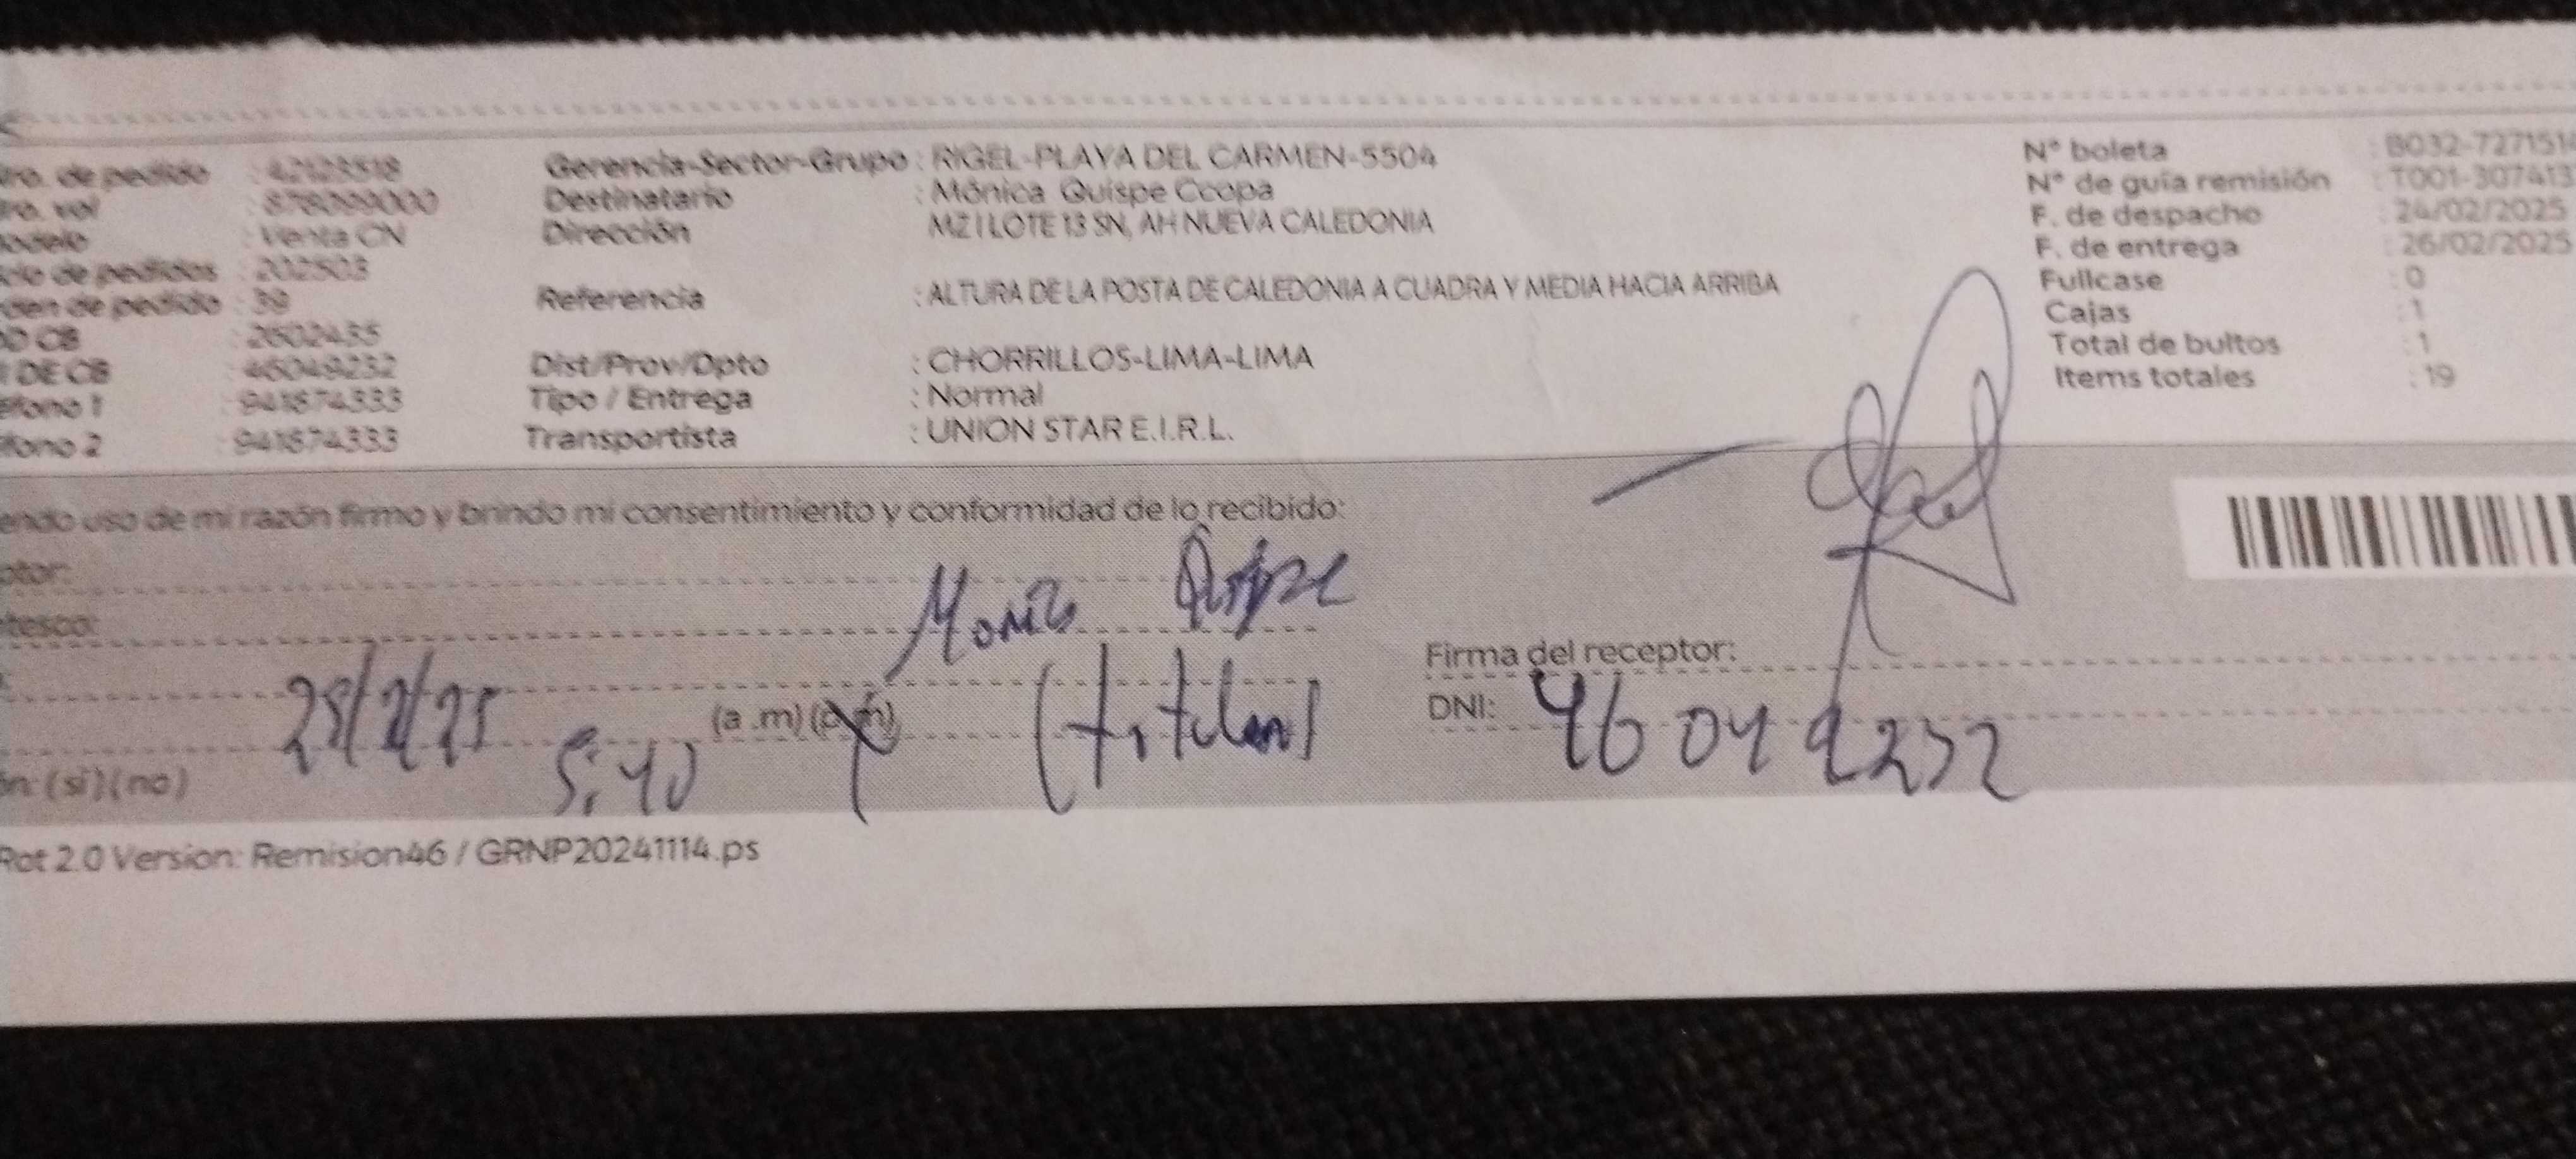 ro. de pedido : 42123518 Gerencia-Sector-Grupo : RIGEL-PLAYA DEL CARMEN-5504 N° boleta : B032-727151
ro. vol : 878099000 Destinatario : Mónica Quispe Ccopa N° de guía remisión : T001-307413
odelo : Venta CN Dirección MZ I LOTE 13 SN, AH NUEVA CALEDONIA F. de despacho : 24/02/2025
clo de pedidos : 202503 F. de entrega : 26/02/2025
den de pedido : 39 Referencia : ALTURA DE LA POSTA DE CALEDONIA A CUADRA Y MEDIA HACIA ARRIBA Fullcase : 0
CB : 2602435 Cajas : 1
DE CB : 46049232 Dist/Prov/Dpto : CHORRILLOS-LIMA-LIMA Total de bultos : 1
éfono 1 : 941874333 Tipo / Entrega : Normal Items totales : 19
fono 2 : 941874333 Transportista : UNION STAR E.I.R.L.
endo uso de mi razón firmo y brindo mi consentimiento y conformidad de lo recibido:
ptor: Monica Quispe
tesco:
Firma del receptor:
(titular)
(a .m) (p.m) DNI: 46049232
5:40
ón: (si) (no)
Rot 2.0 Version: Remision46 / GRNP20241114.ps